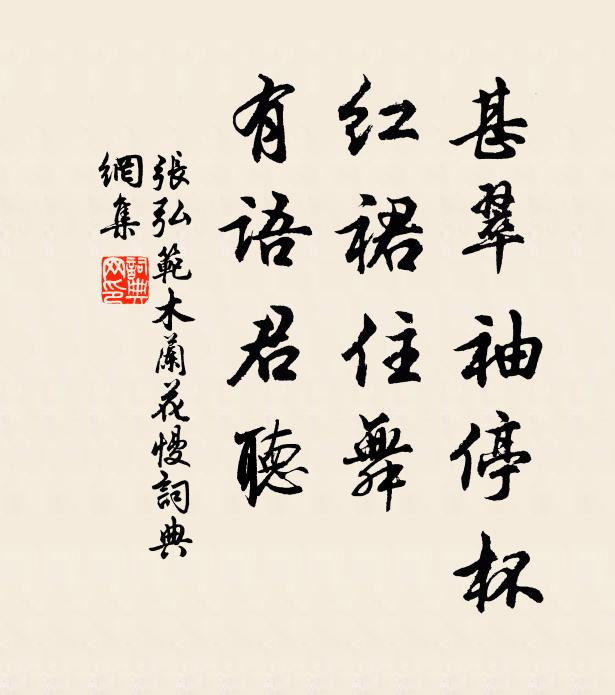 甚翠袖停杯
红裙住舞
有语君聽
張弘範木蘭花慢詞典
網集
詞典
网印